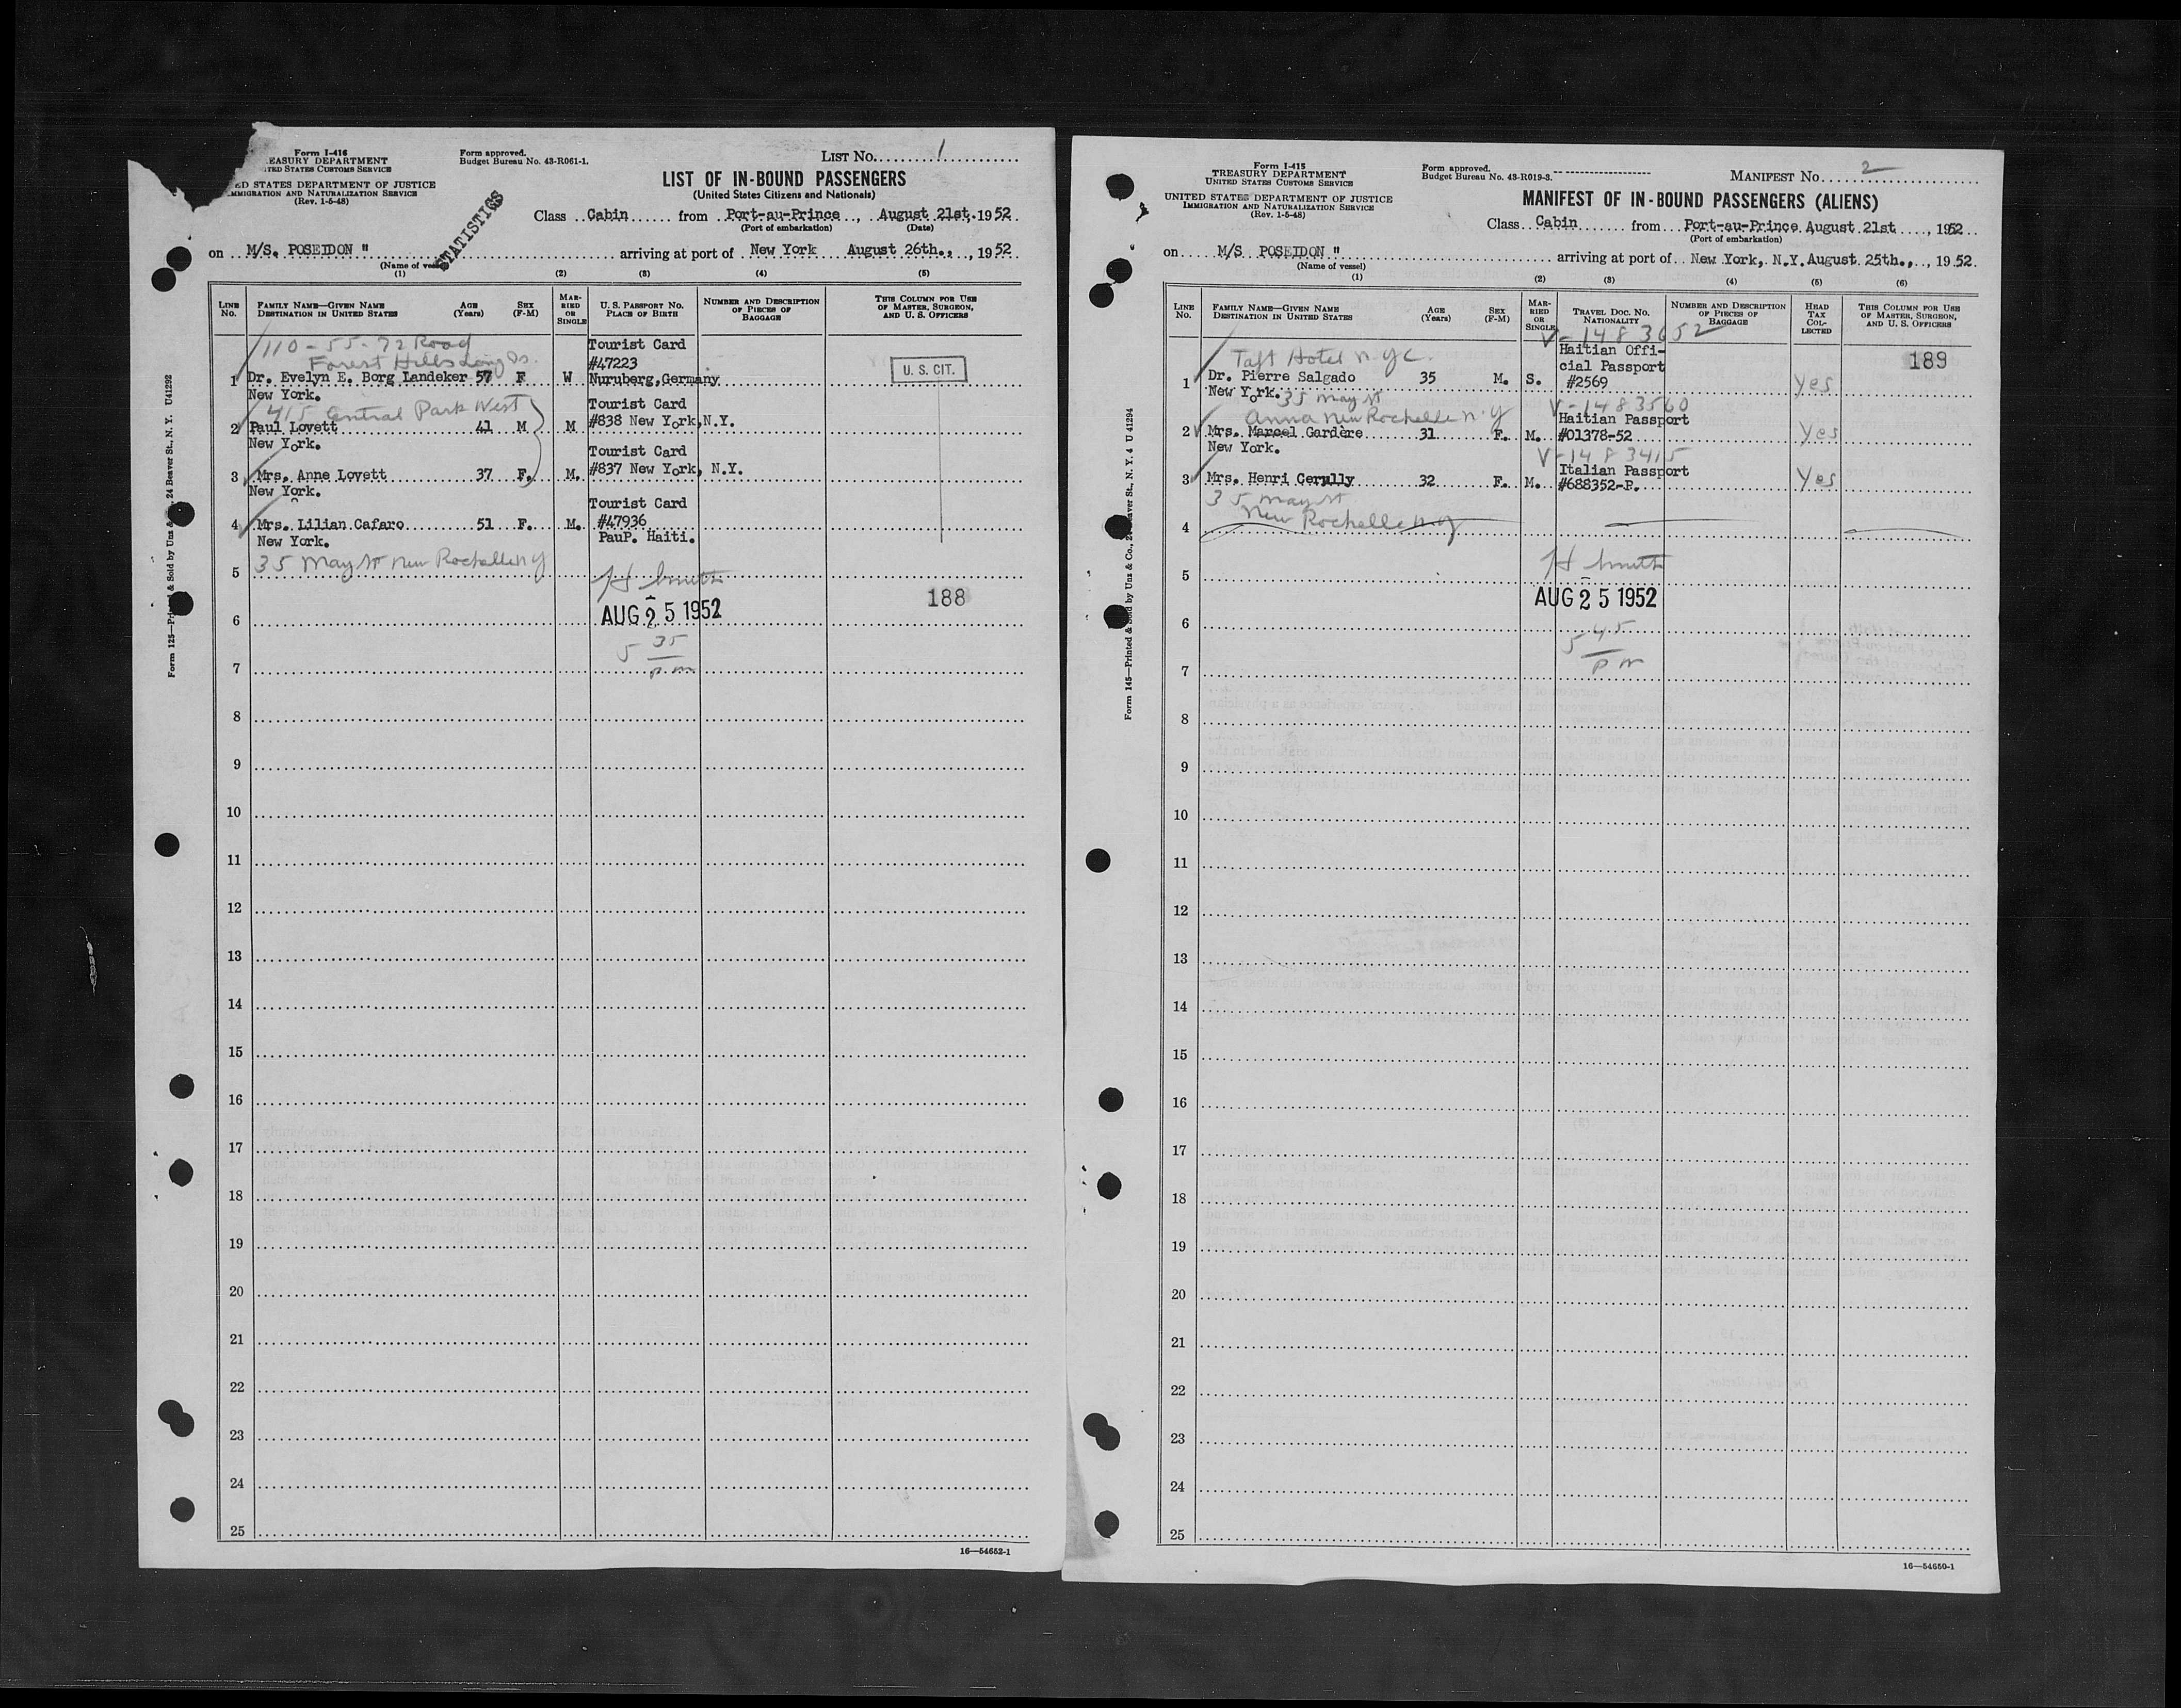 Form I-416
EASURY DEPARTMENT
ITED STATES CUSTOMS SERVICE
ED STATES DEPARTMENT OF JUSTICE
MMIGRATION AND NATURALIZATION SERVICE
(Rev. 1-5-48)
Form approved.
Budget Bureau No. 43-R061-1.
STATISTICS
LIST No. 1
LIST OF IN-BOUND PASSENGERS
(United States Citizens and Nationals)
Class Cabin from Port-au-Prince, August 21st, 1952
(Port of embarkation) (Date)
on M/S. POSEIDON " arriving at port of New York August 26th., 1952
(Name of vessel)
(1) (2) (3) (4) (5)
LINE No. FAMILY NAME—GIVEN NAME DESTINATION IN UNITED STATES AGE (Years) SEX (F-M) MARRIED OR SINGLE U. S. PASSPORT NO. PLACE OF BIRTH NUMBER AND DESCRIPTION OF PIECES OF BAGGAGE THIS COLUMN FOR USE OF MASTER, SURGEON, AND U. S. OFFICERS
110-55-72 Road
Forest Hills Long Is.
Tourist Card
#47223
1 Dr. Evelyn E. Borg Landeker 57 F W Nuruberg, Germany U. S. CIT.
New York.
415 Central Park West
Tourist Card
2 Paul Lovett 41 M M #838 New York, N.Y.
New York.
Tourist Card
3 Mrs. Anne Lovett 37 F. M. #837 New York, N.Y.
New York.
Tourist Card
4 Mrs. Lilian Cafaro 51 F. M. #47936
New York. PauP. Haiti.
35 May St New Rochelle N Y
5
H Smith
188
6 AUG 25 1952
5 35
p.m
7
8
9
10
11
12
13
14
15
16
17
18
19
20
21
22
23
24
25
16—54652-1
Form 125—Printed & Sold by Unz & Co., 24 Beaver St., N. Y. U41292
Form I-415
TREASURY DEPARTMENT
UNITED STATES CUSTOMS SERVICE
UNITED STATES DEPARTMENT OF JUSTICE
IMMIGRATION AND NATURALIZATION SERVICE
(Rev. 1-5-48)
Form approved.
Budget Bureau No. 43-R019-3.
MANIFEST No. 2
MANIFEST OF IN-BOUND PASSENGERS (ALIENS)
Class Cabin from Port-au-Prince August 21st, 1952
(Port of embarkation)
on M/S POSEIDON " arriving at port of New York, N.Y. August 25th., 1952.
(Name of vessel)
(1) (2) (3) (4) (5) (6)
LINE No. FAMILY NAME—GIVEN NAME DESTINATION IN UNITED STATES AGE (Years) SEX (F-M) MARRIED OR SINGLE TRAVEL DOC. NO. NATIONALITY NUMBER AND DESCRIPTION OF PIECES OF BAGGAGE HEAD TAX COLLECTED THIS COLUMN FOR USE OF MASTER, SURGEON, AND U. S. OFFICERS
V-1483652
Taft Hotel N.Y.C.
Haitian Offi-
cial Passport
189
1 Dr. Pierre Salgado 35 M. S. #2569 Yes
New York. 35 May St
V-1483560
Anna New Rochelle N.Y
Haitian Passport
2 Mrs. Marcel Gardère 31 F. M. #01378-52 Yes
New York.
V-1483415
Italian Passport
3 Mrs. Henri Cerully 32 F. M. #688352-P. Yes
35 May St
New Rochelle N.Y
4
H Smith
5
AUG 25 1952
6
5 45
P M
7
8
9
10
11
12
13
14
15
16
17
18
19
20
21
22
23
24
25
16—54650-1
Form 145—Printed & Sold by Unz & Co., 24 Beaver St., N. Y. 4 U 41294